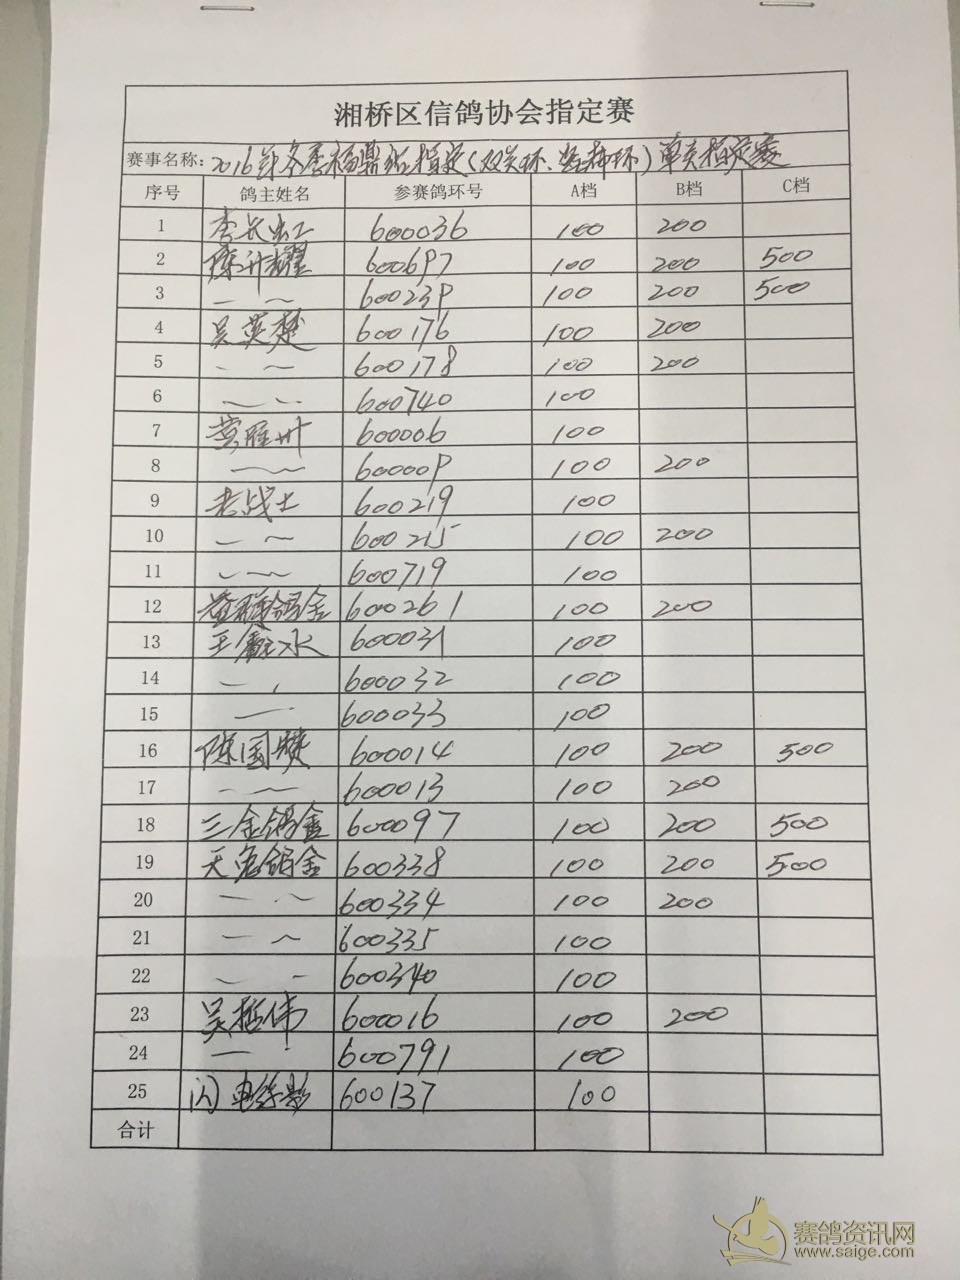 湘桥区信鸽协会指定赛
赛事名称：2016年冬季福鼎站指定(双关环、 环)单关指定赛
序号 鸽主姓名 参赛鸽环号 A档 B档 C档
1 李长 600036 100 200
2 陈升耀 600697 100 200 500
3 — ~ 60023P 100 200 500
4 吴英楚 600176 100 200
5 — ~ 600178 100 200
6 — ~ 600740 100
7 黄雁州 600006 100
8 — ~ 60000P 100 200
9 老战士 600219 100
10 — ~ 600215 100 200
11 — ~ 600719 100
12 鸽舍 600261 100 200
13 王 水 600031 100
14 — , 600032 100
15 — · 600033 100
16 陈国赞 600014 100 200 500
17 — ~ 600013 100 200
18 三金鸽舍 600097 100 200 500
19 天兔鸽舍 600338 100 200 500
20 — ~ 600334 100 200
21 — ~ 600335 100
22 — - 600340 100
23 吴哲伟 600016 100 200
24 — · 600791 100
25 闪电 影 600137 100
合计
赛鸽资讯网
www.saige.com